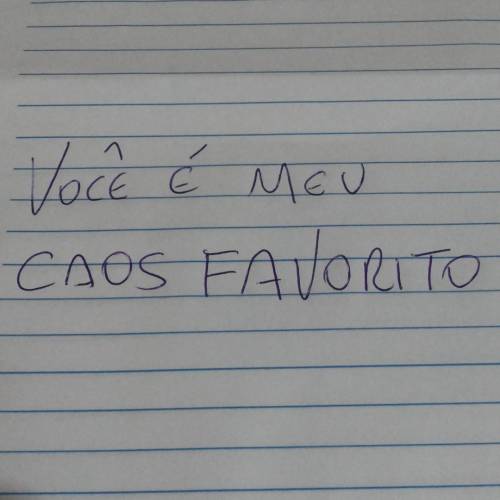 VOCÊ É MEU
CAOS FAVORITO